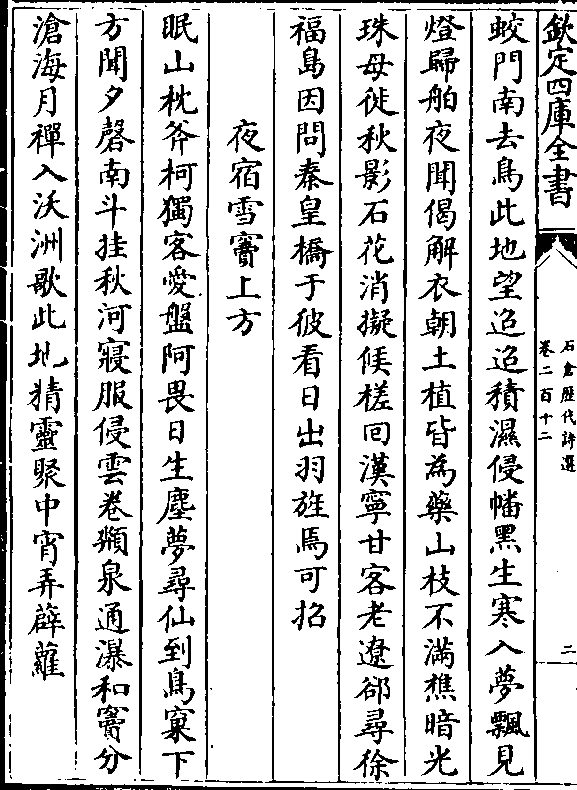 欽定四庫全書
石倉歴代詩選
卷二百十二
二
蛟門南去鳥此地望迢迢積濕侵幡黑生寒入夢飄見
燈歸舶夜聞偈解衣朝土植皆為藥山枝不滿樵暗光
珠母徙秋影石花消擬候槎回漢寧甘客老遼郤尋徐
福島因問秦皇橋于彼看日出羽旌焉可招
夜宿雪竇上方
眠山枕斧柯獨客愛盤阿畏日生塵夢尋仙到鳥窠下
方聞夕磬南斗挂秋河寢服侵雲卷瀕泉通瀑和竇分
滄海月禪入沃洲歌此地精靈聚中宵弄薜蘿